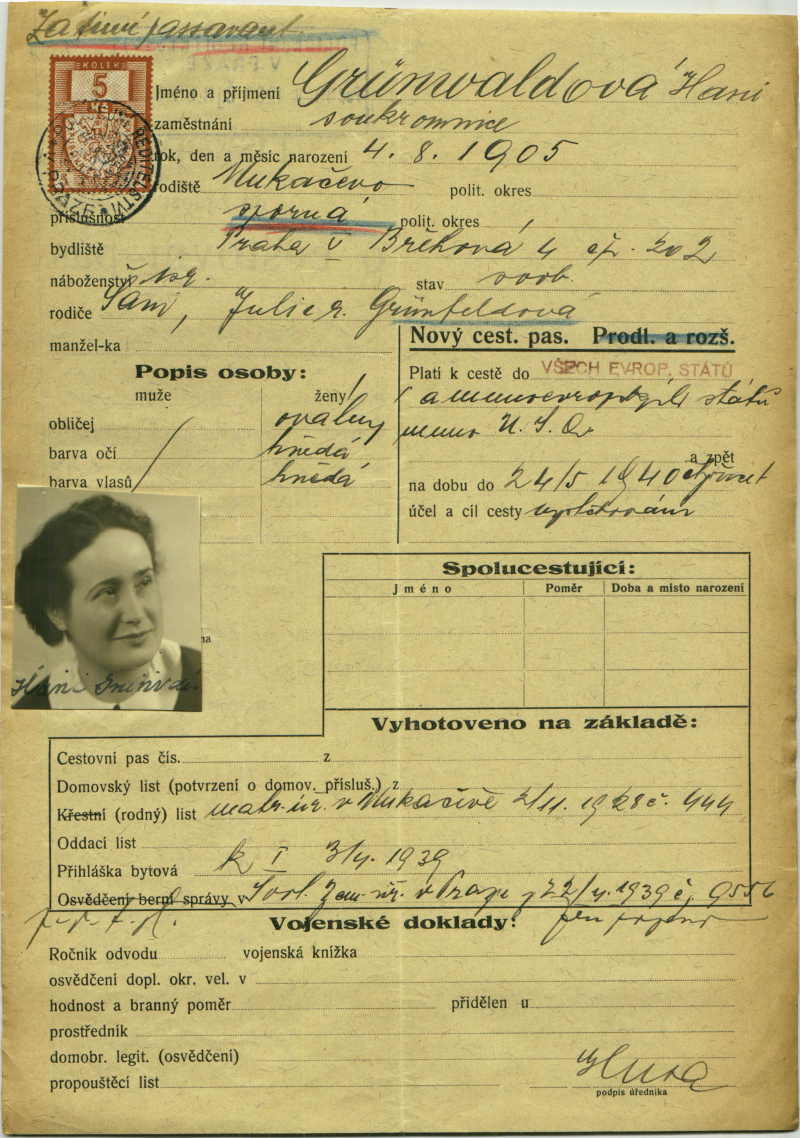 Zatímní passavant.
KOLEK
5
ŘEDITELSTVÍ
PRAZE
Jméno a příjmení Grünwaldová Hani
zaměstnání soukromnice
rok, den a měsíc narození 4. 8. 1905
rodiště Mukačevo polit. okres
příslušnost sporná polit. okres
bydliště Praha V Břehová 4 čp. 202
náboženství isr. stav svob.
rodiče Sani, Julie r. Grünfeldová
manžel-ka
Nový cest. pas. Prodl. a rozš.
Popis osoby:
muže ženy
obličej oválný
barva očí hnědá
barva vlasů hnědá
Platí k cestě do VŠECH EVROP. STÁTŮ
a mimoevropských států
mimo U. S. A.
a zpět
na dobu do 24/5 1940
účel a cíl cesty vystěhování
Spolucestující:
Jméno Poměr Doba a místo narození
na
Hani Grünwald
Vyhotoveno na základě:
Cestovní pas čís. z
Domovský list (potvrzení o domov. přísluš.) z
Křestní (rodný) list matr. úř. v Mukačevě 2/11. 1928 č. 444
Oddací list
Přihláška bytová k I 3/4. 1939
Osvědčení berní správy v Zem. úř. v Praze z 22/4. 1939 č. 9556
Vojenské doklady:
Ročník odvodu vojenská knížka
osvědčení dopl. okr. vel. v
hodnost a branný poměr přidělen u
prostředník
domobr. legit. (osvědčení)
propouštěcí list
podpis úředníka